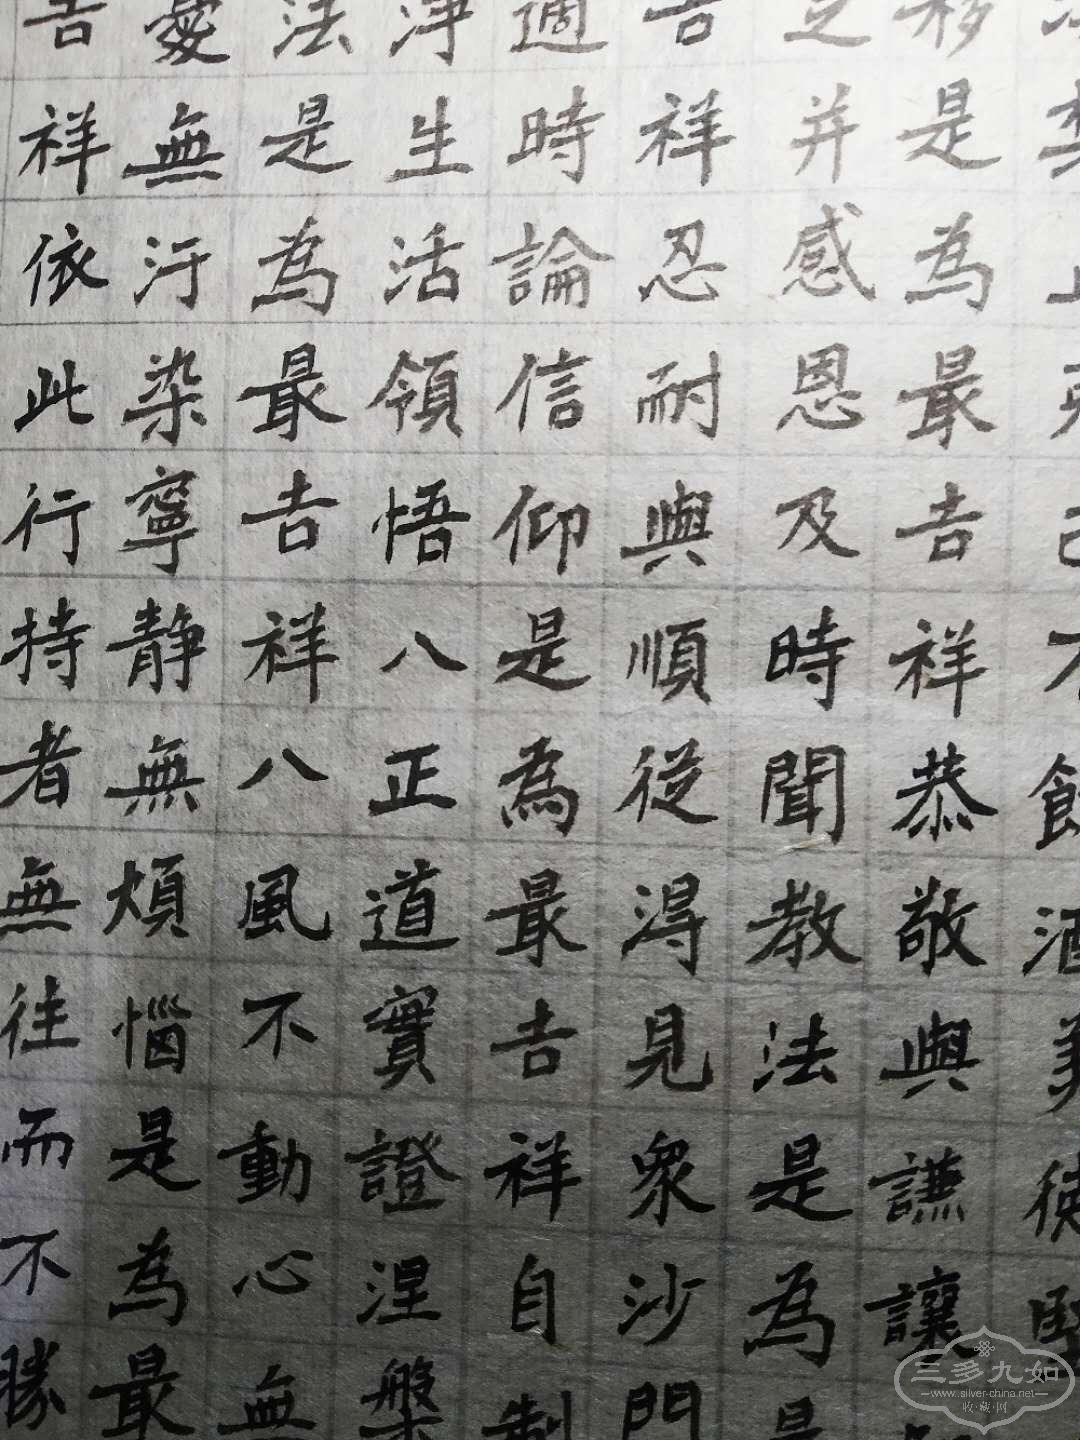 禁止亦己不飲酒美徒堅
移是為最吉祥恭敬與謙讓
之并感恩及時聞教法是為是
吉祥忍耐與順從得見眾沙門
適時論信仰是為最吉祥自制
淨生活領悟八正道實證涅槃
法是為最吉祥八風不動心無
憂無汙染寧靜無煩惱是為最
吉祥依此行持者無往而不勝
三多九如
www.silver-china.net
收·藏·网